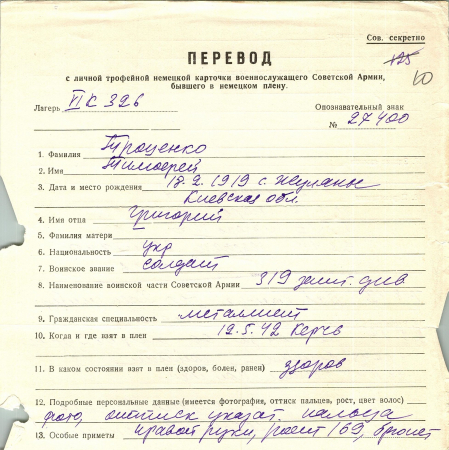 Сов. секретно
ПЕРЕВОД
125
10
с личной трофейной немецкой карточки военнослужащего Советской Армии,
бывшего в немецком плену.
Лагерь VI К 326
Опознавательный знак
№ 27400
1. Фамилия Троценко
2. Имя Тимофей
3. Дата и место рождения 18.2.1919 с. Жуляны
Киевская обл.
4. Имя отца Григорий
5. Фамилия матери
6. Национальность укр
7. Воинское звание солдат
8. Наименование воинской части Советской Армии 319 зенит. див
9. Гражданская специальность металлист
10. Когда и где взят в плен 12.5.42 Керчь
11. В каком состоянии взят в плен (здоров, болен, ранен) здоров
12. Подробные персональные данные (имеется фотография, оттиск пальцев, рост, цвет волос)
фото, оттиск указат. пальца
13. Особые приметы правой руки, рост 169, брюнет